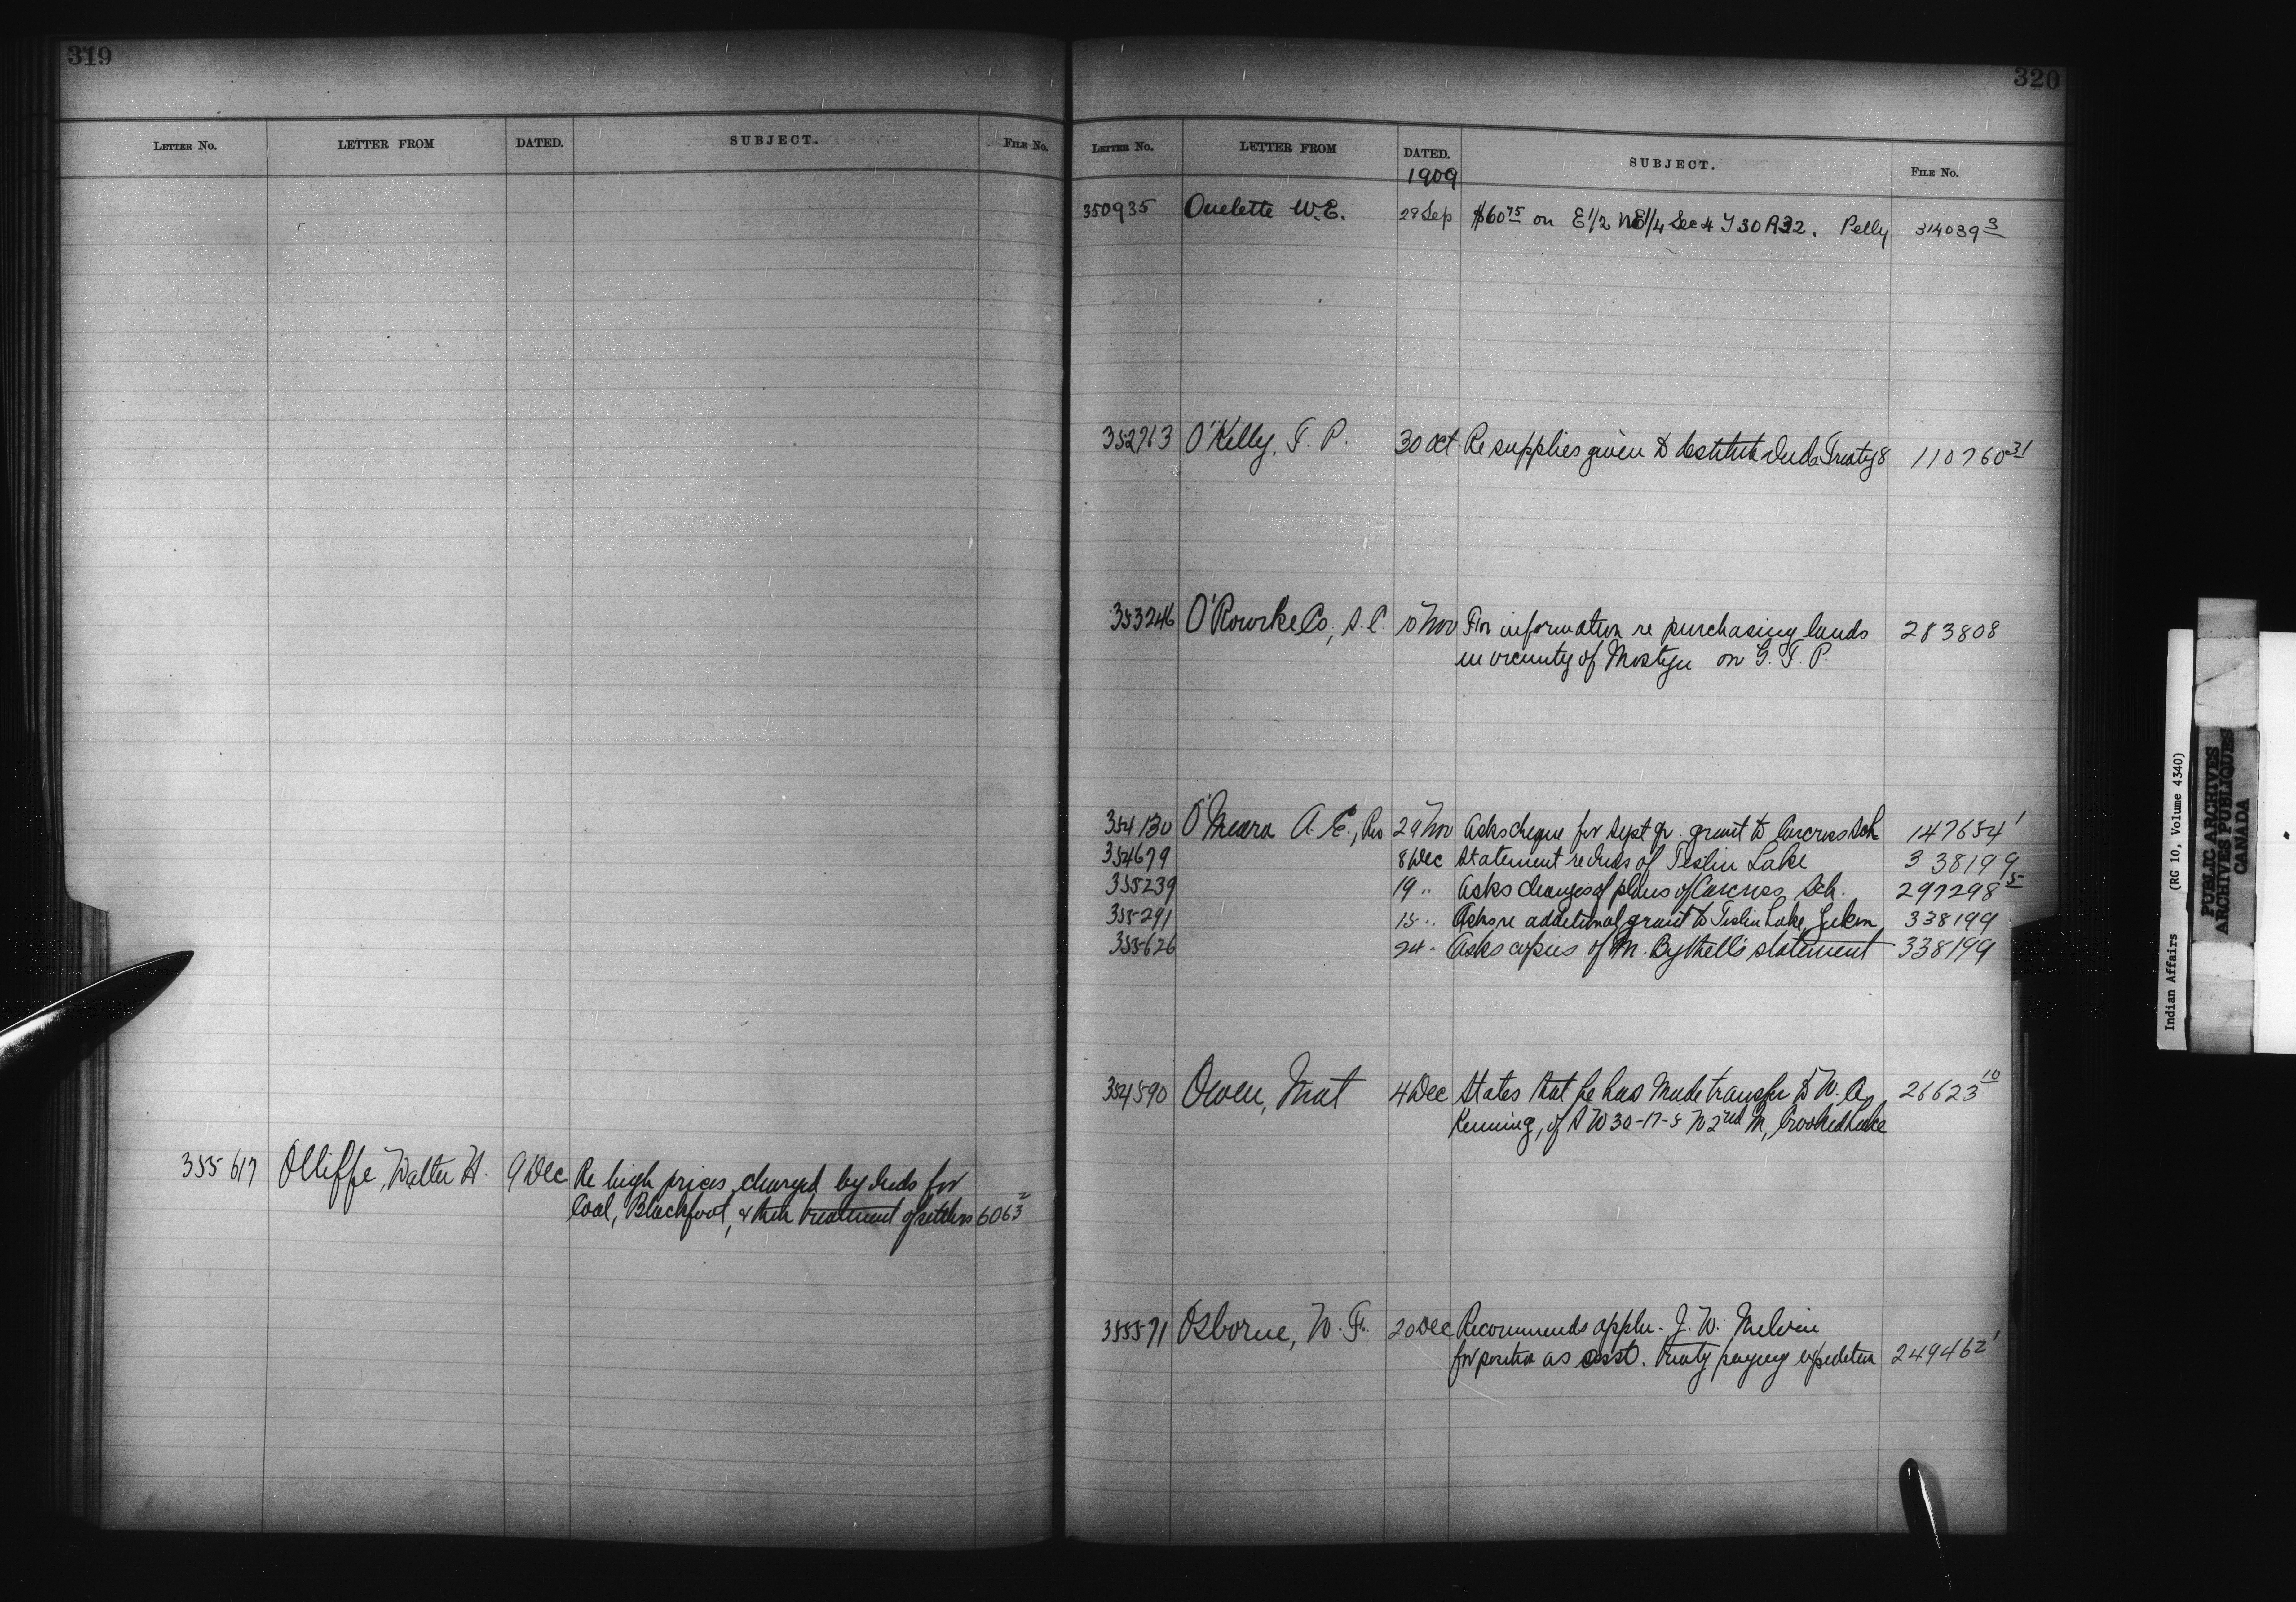 319
LETTER NO. LETTER FROM DATED. SUBJECT. FILE NO.
355617 Olliffe, Walter H. 9 Dec Re high prices charged by Inds for
Coal, Blackfoot, & their treatment of settlers 6063 2
320
LETTER NO. LETTER FROM DATED. SUBJECT. FILE NO.
1909
350935 Ouelette W.E. 29 Sep $60 75 on E 1/2 NE 1/4 Sec 4 T 30 R 32. Pelly 314039 3
352713 O'Kelly, F. P. 30 Oct Re supplies given to destitute Inds Treaty 8 110760 31
353246 O'Rourke Co, S. C. 10 Nov For information re purchasing lands 283808
in vicinity of Mostyn on G. T. P.
354130 O'Meara A. E., Rev 29 Nov Asks cheque for Sept qr. grant to Carcross Sch 147654 1
354679 8 Dec Statement re Inds of Teslin Lake 338199
355239 19 " Asks changes of plans of Carcross Sch. 297298 5
355291 15 " Asks re additional grant to Teslin Lake, Yukon 338199
355626 24 " Asks copies of M. Bythell's statement 338199
354590 Owen, Mat 4 Dec States that he has made transfer to W. A. 26623 10
Kenning, of SW 30-17-5 W 2nd M, Crooked Lake
355571 Osborne, W. F. 20 Dec Recommends appln. J. W. Melvin
for position as asst. treaty paying expedition 249462 1
Indian Affairs (RG 10, Volume 4340)
PUBLIC ARCHIVES
ARCHIVES PUBLIQUES
CANADA